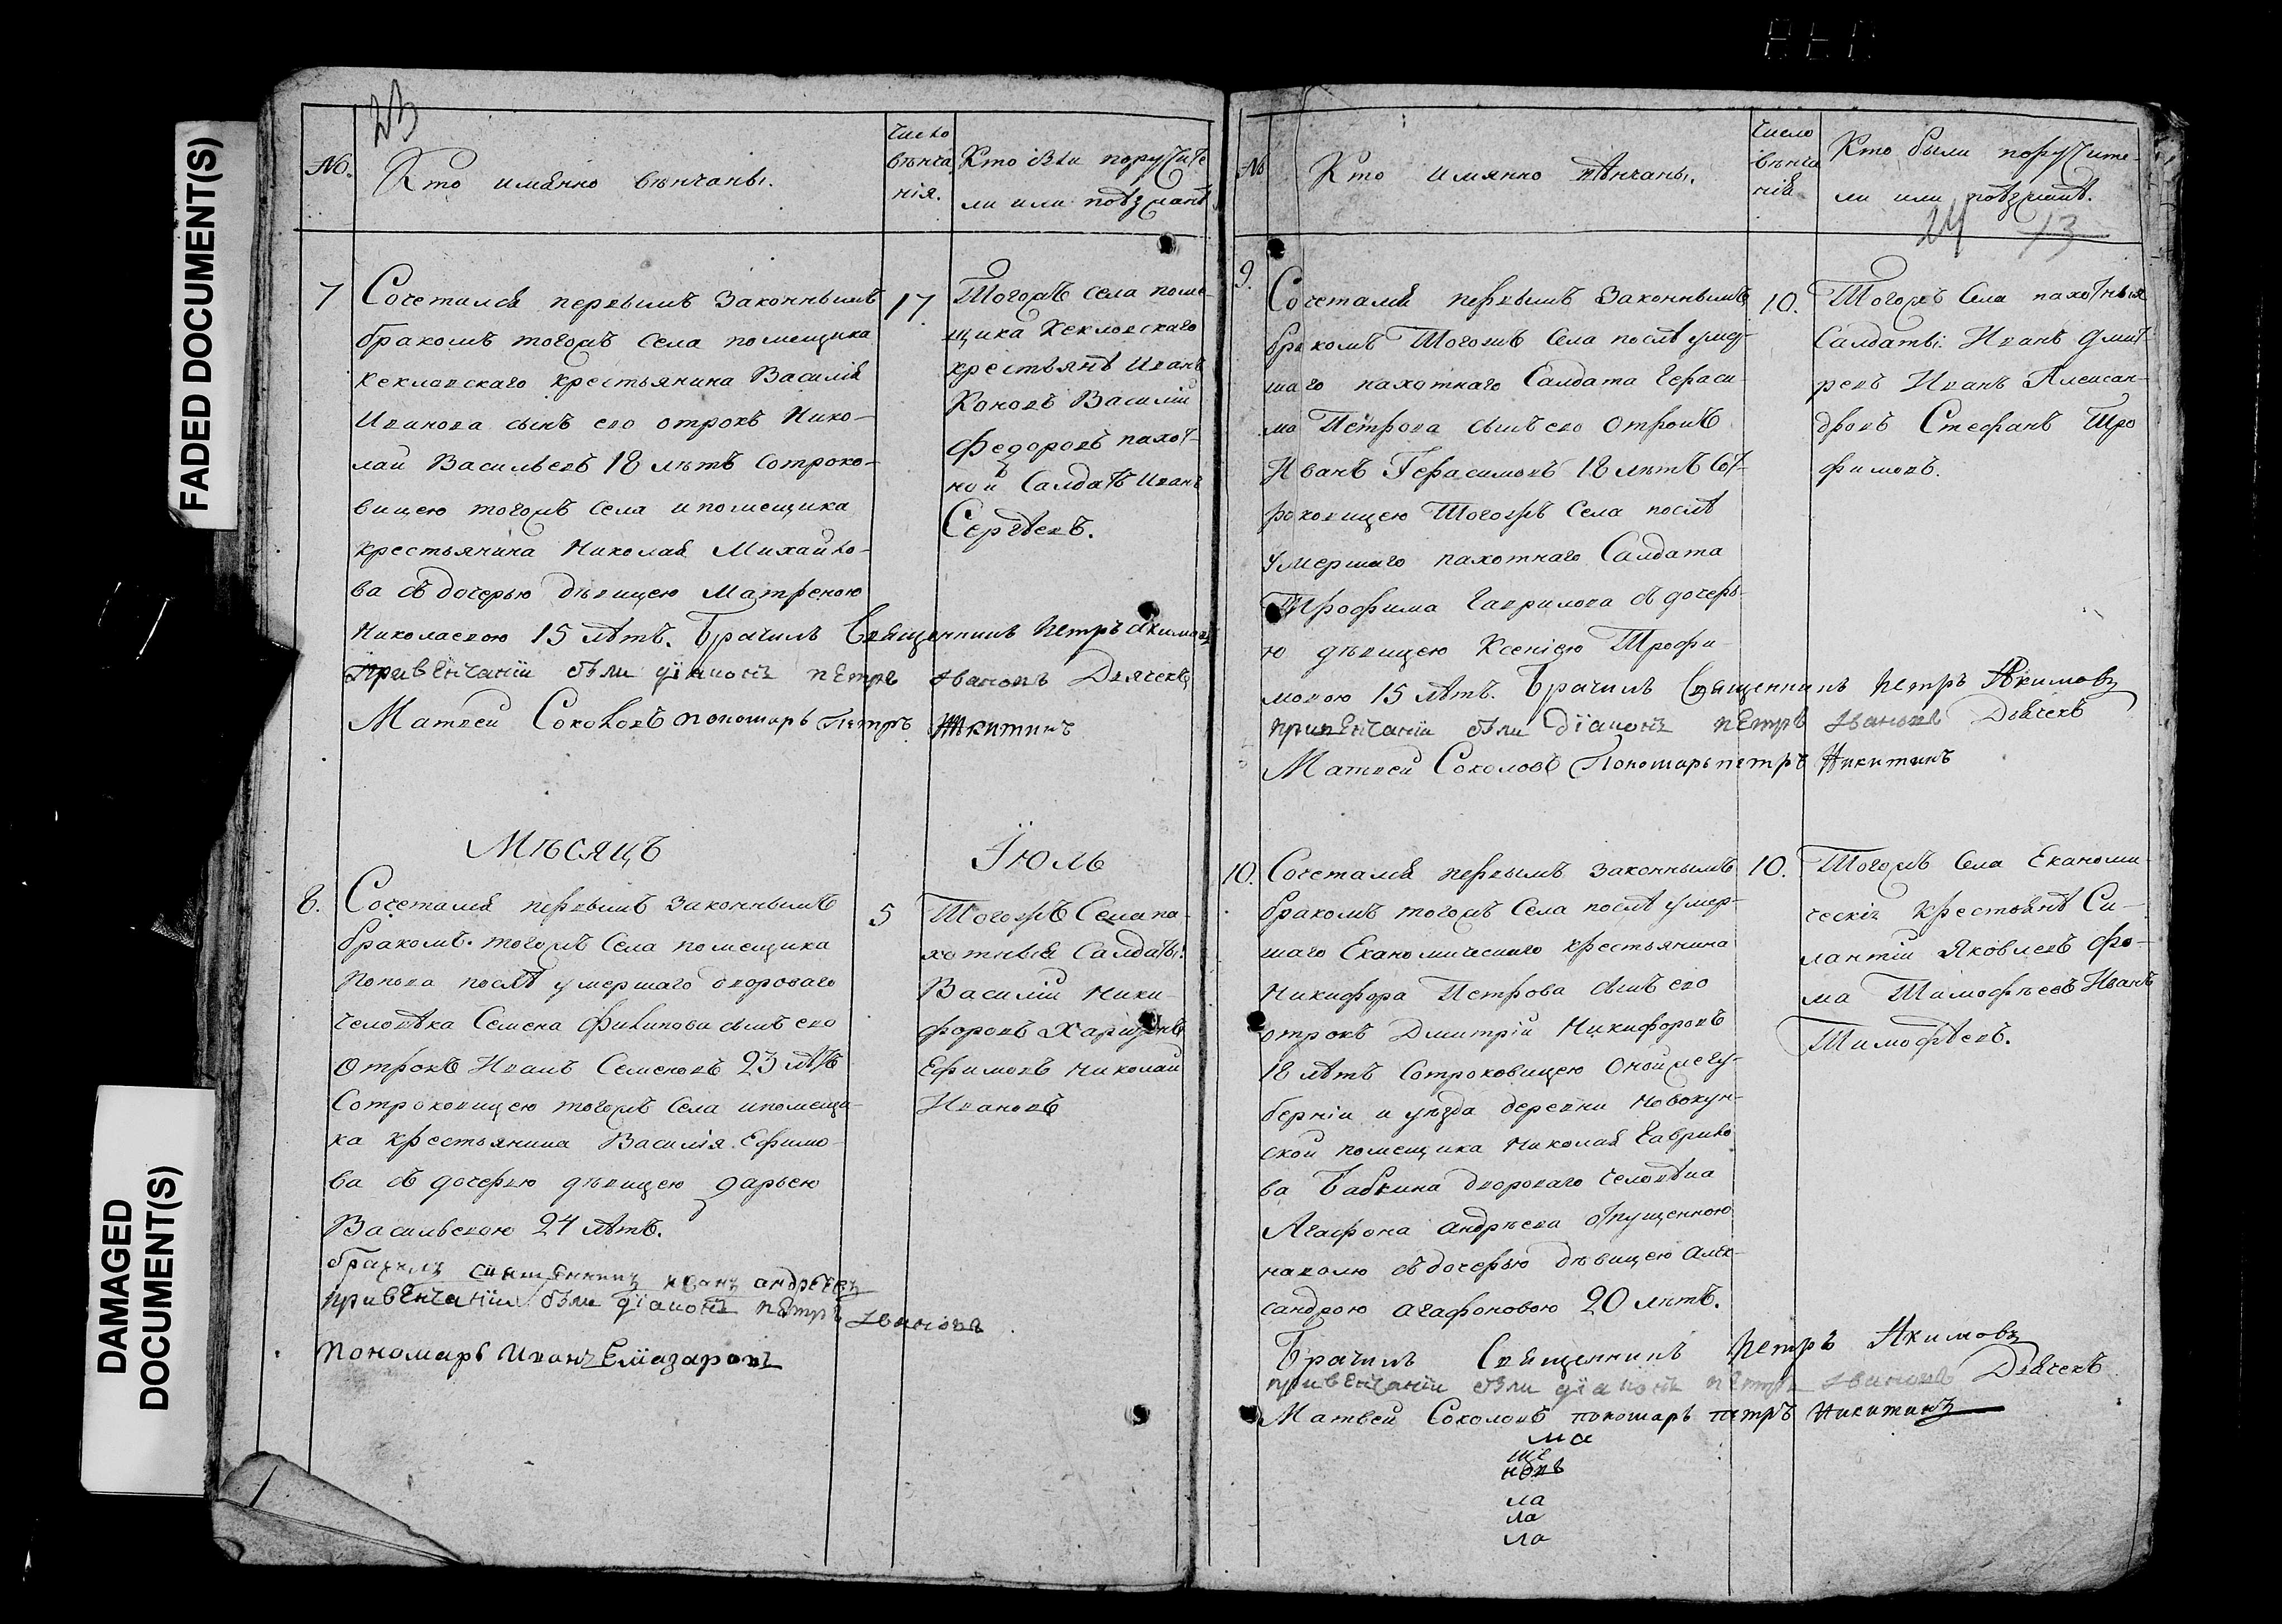 FADED DOCUMENT(S)
DAMAGED
DOCUMENT(S)
23
№.
Кто имянно вѣнчаны.
число
вѣнча
нія.
ли или поѣзжанѣ
7
Сочетался первымъ законнымъ
бракомъ тогожъ села помещика
Кекловскаго крестьянина Василія
Иванова сынъ его отрокъ Нико-
лаи Васильевъ 18 лѣтъ сотроко-
вицею тогожъ села ипомещика
крестьянина Николая Михайло-
ва съ дочерью дѣвицею Матреною
Николаевою 15 лѣтъ. Брачилъ Священникъ Петръ Акимовъ
привенчаніи были діаконъ петръ Ивановъ Дьячекъ
Матвеи Соколовъ пономарь Петръ Никитинъ
17
Тогожъ села поме-
щика Кекловскаго
крестьянѣ Иванъ
Коновъ Василіи
Федоровъ пахот-
ной Салдатъ Иванъ
Сергѣевъ.
Мѣсяцъ
Іюль
8.
Сочетался первымъ законнымъ
бракомъ тогожъ села помещика
Попова послѣ умершаго двороваго
человѣка Семена Филипова сынъ его
отрокъ Иванъ Семеновъ 23 лѣтъ
Сотроковицею тогожъ села ипомещи-
ка крестьянина Василія Ефимо-
ва съ дочерью дѣвицею дарьею
Васильевою 24 лѣтъ.
брачилъ священникъ иванъ андрѣевъ
привенчаніи были діаконъ петръ Ивановъ
Пономарь Иванъ Елиазаровъ
5
Тогожъ Села па-
хотныя Салдаты:
Василіи Ники-
форовъ Харитонъ
Ефимовъ Николаи
Ивановъ
№
Кто имянно вѣнчаны.
число
вѣнча
нія
Кто были поручите-
ли или поѣзжанѣ.
24 13
9.
Сочетался первымъ законнымъ
бракомъ Тогожъ села послѣ умер-
шаго пахотнаго Салдата Гераси-
ма Петрова сынъ его отрокъ
Иванъ Герасимовъ 18 лѣтъ Сот-
роковицею Тогожъ села послѣ
умершаго пахотнаго Салдата
Трофима Гаврилова съ дочерь-
ю дѣвицею Ксеніею Трофи-
мовою 15 лѣтъ. Брачилъ Священникъ Петръ Акимовъ
привенчаніи были діаконъ петръ Ивановъ Дьячекъ
Матвеи Соколовъ Пономарь петръ Никитинъ
10.
Тогожъ Села пахотныя
Салдаты: Иванъ Дмит-
ревъ Иванъ Алексан-
дровъ Стефанъ Тро
фимовъ.
10.
Сочетался первымъ законнымъ
бракомъ тогожъ села послѣ умер-
шаго Економическаго крестьянина
Никифора Петрова сынъ его
отрокъ Дмитріи Никифоровъ
18 лѣтъ Сотроковицею Онойже гу-
берніи и уѣзда деревни Новокун-
ской помещика Николая Гаврило
ва Бабкина двороваго человѣка
Агафона андрѣева отпущенною
наволю съ дочерью дѣвицею алек-
сандрою агафоновою 20 лѣтъ.
Брачилъ Священникъ Петръ Акимовъ
привенчаніи были діаконъ петръ Ивановъ Дьячекъ
Матвеи Соколовъ пономарь петръ Никитинъ
10.
Тогожъ Села Економи-
ческія крестьянѣ Си-
лантіи Яковлевъ Фо-
ма Тимофѣевъ Иванъ
Тимофѣевъ.
ма
ще
новъ
ла
ла
ла